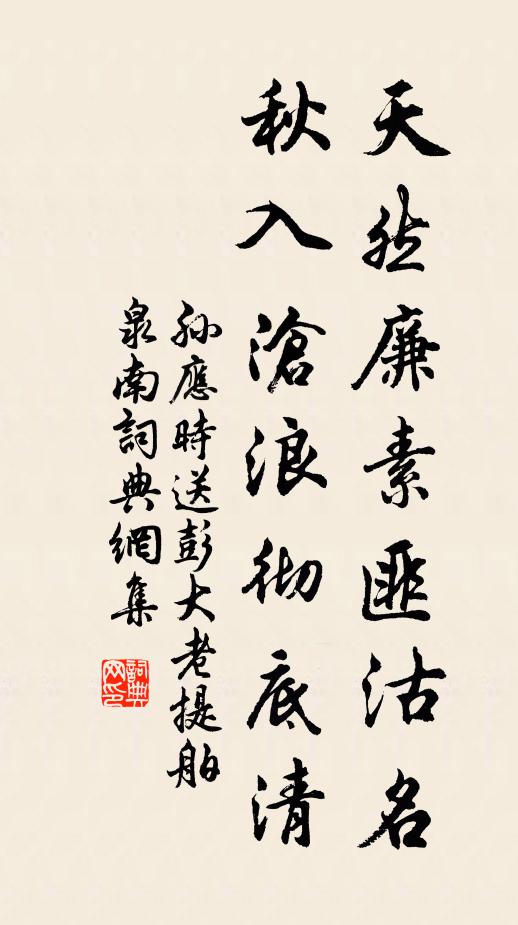 天然廉素匪沽名
秋入滄浪彻底清
孙應時送彭大老提舶
泉南詞典網集
詞典网印